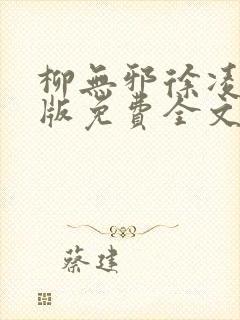 柳無邪徐凌
版免費全文
蔡建